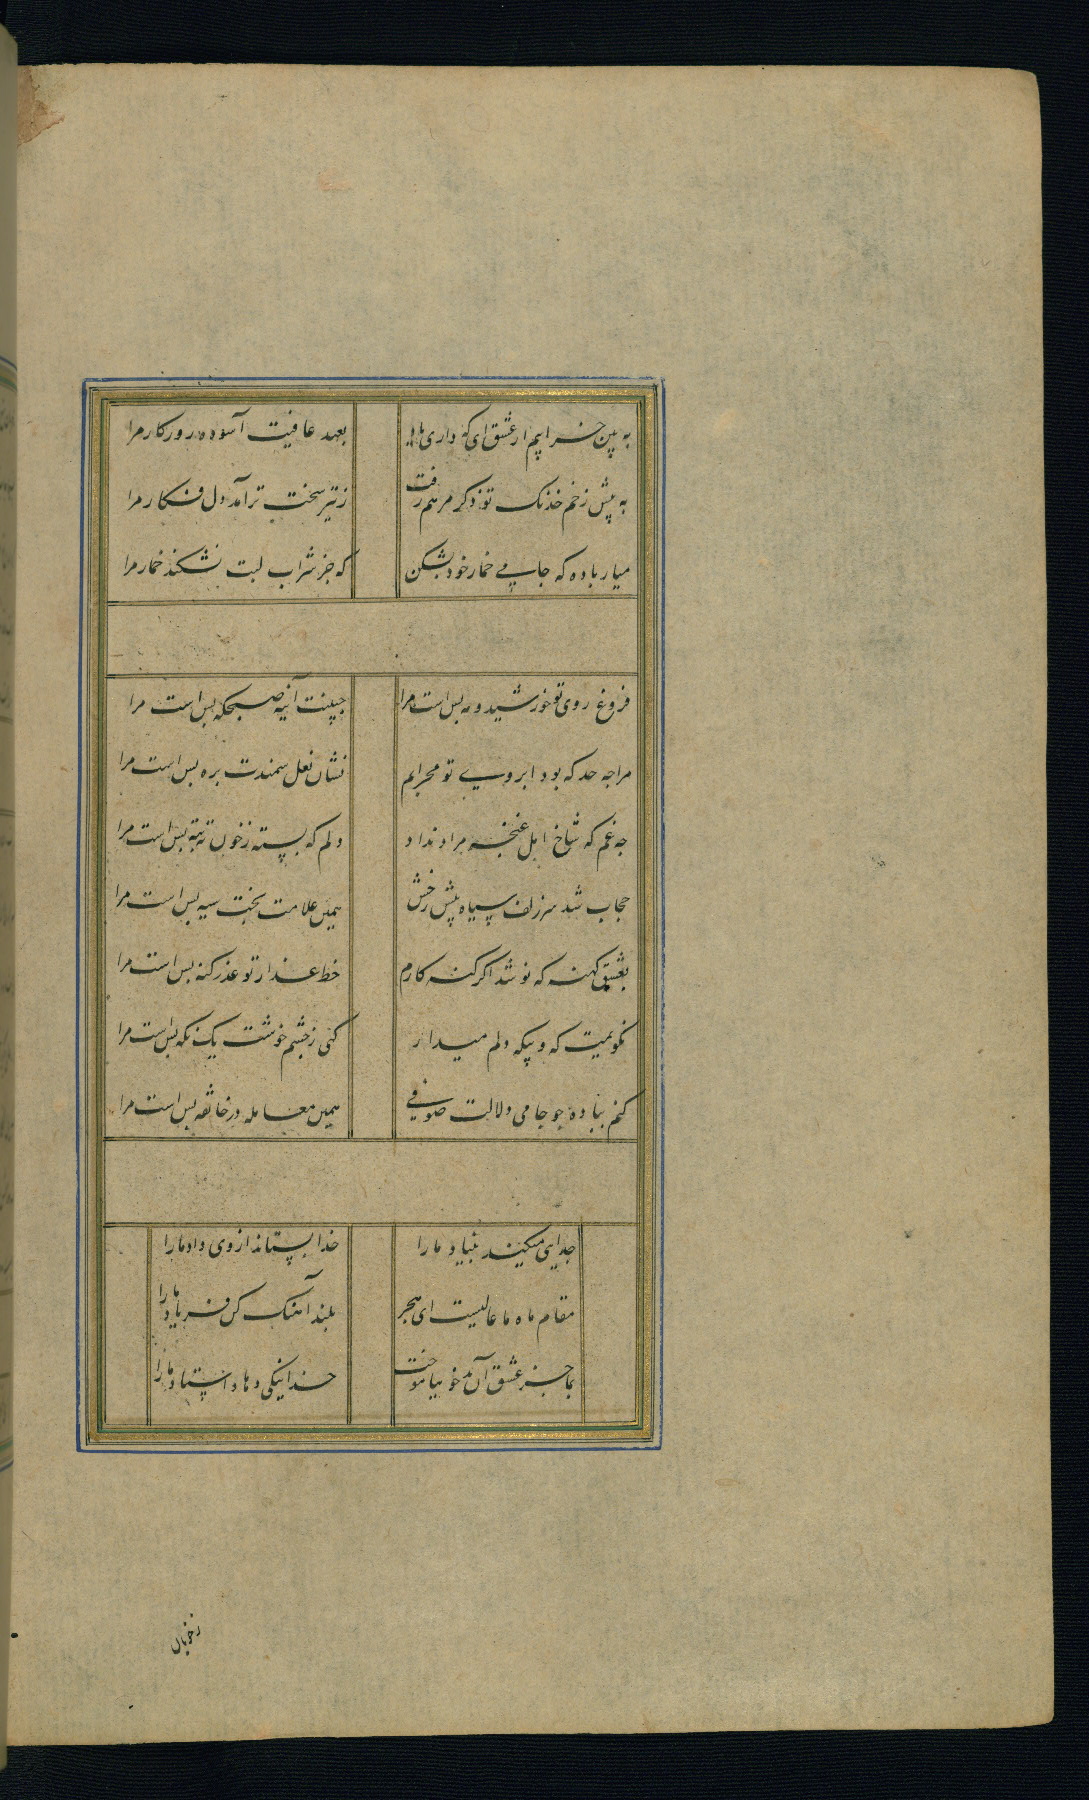 به بین خرابیم از عشق ای که داری یاد بعهد عافیت آسوده روزکار مرا
به پیش زخم خدنک تو ذکر مرهم رفت ز تیر سخت تر آمد دل فکار مرا
میار باده که جامی خمار خود بشکن که جز شراب لبت نشکند خمار مرا
فروغ روی تو خورشید و مه بس است مرا جبینت آینه صبحکه بس است مرا
مرا جه حد که بود ابروی تو محرابم نشان نعل سمندت بره بس است مرا
جه غم که شاخ امل غنجه مراد نداد دلم که بسته ز خون ته بته بس است مرا
حجاب شد سر زلف سیاه پیش رخش همین علامت بخت سیه بس است مرا
بعشق کهنه که نو شد اکر کنه کارم خط عذار تو عذر کنه بس است مرا
نکویمت که دلم میدار کهی ز جشم خوشت یک نکه بس است مرا
کنم بباده جو جامی دلالت صوفی همین معامله در خانقه بس است مرا
جدایی میکند بنیاد ما را خدا بستاند از وی داد ما را
مقام ماه ما عالیست ای هجر بلند آهنک کن فریاد ما را
بما جز عشق آن مه خو نیاموخت خدا نیکی دهاد استاد ما را
ز خوبان